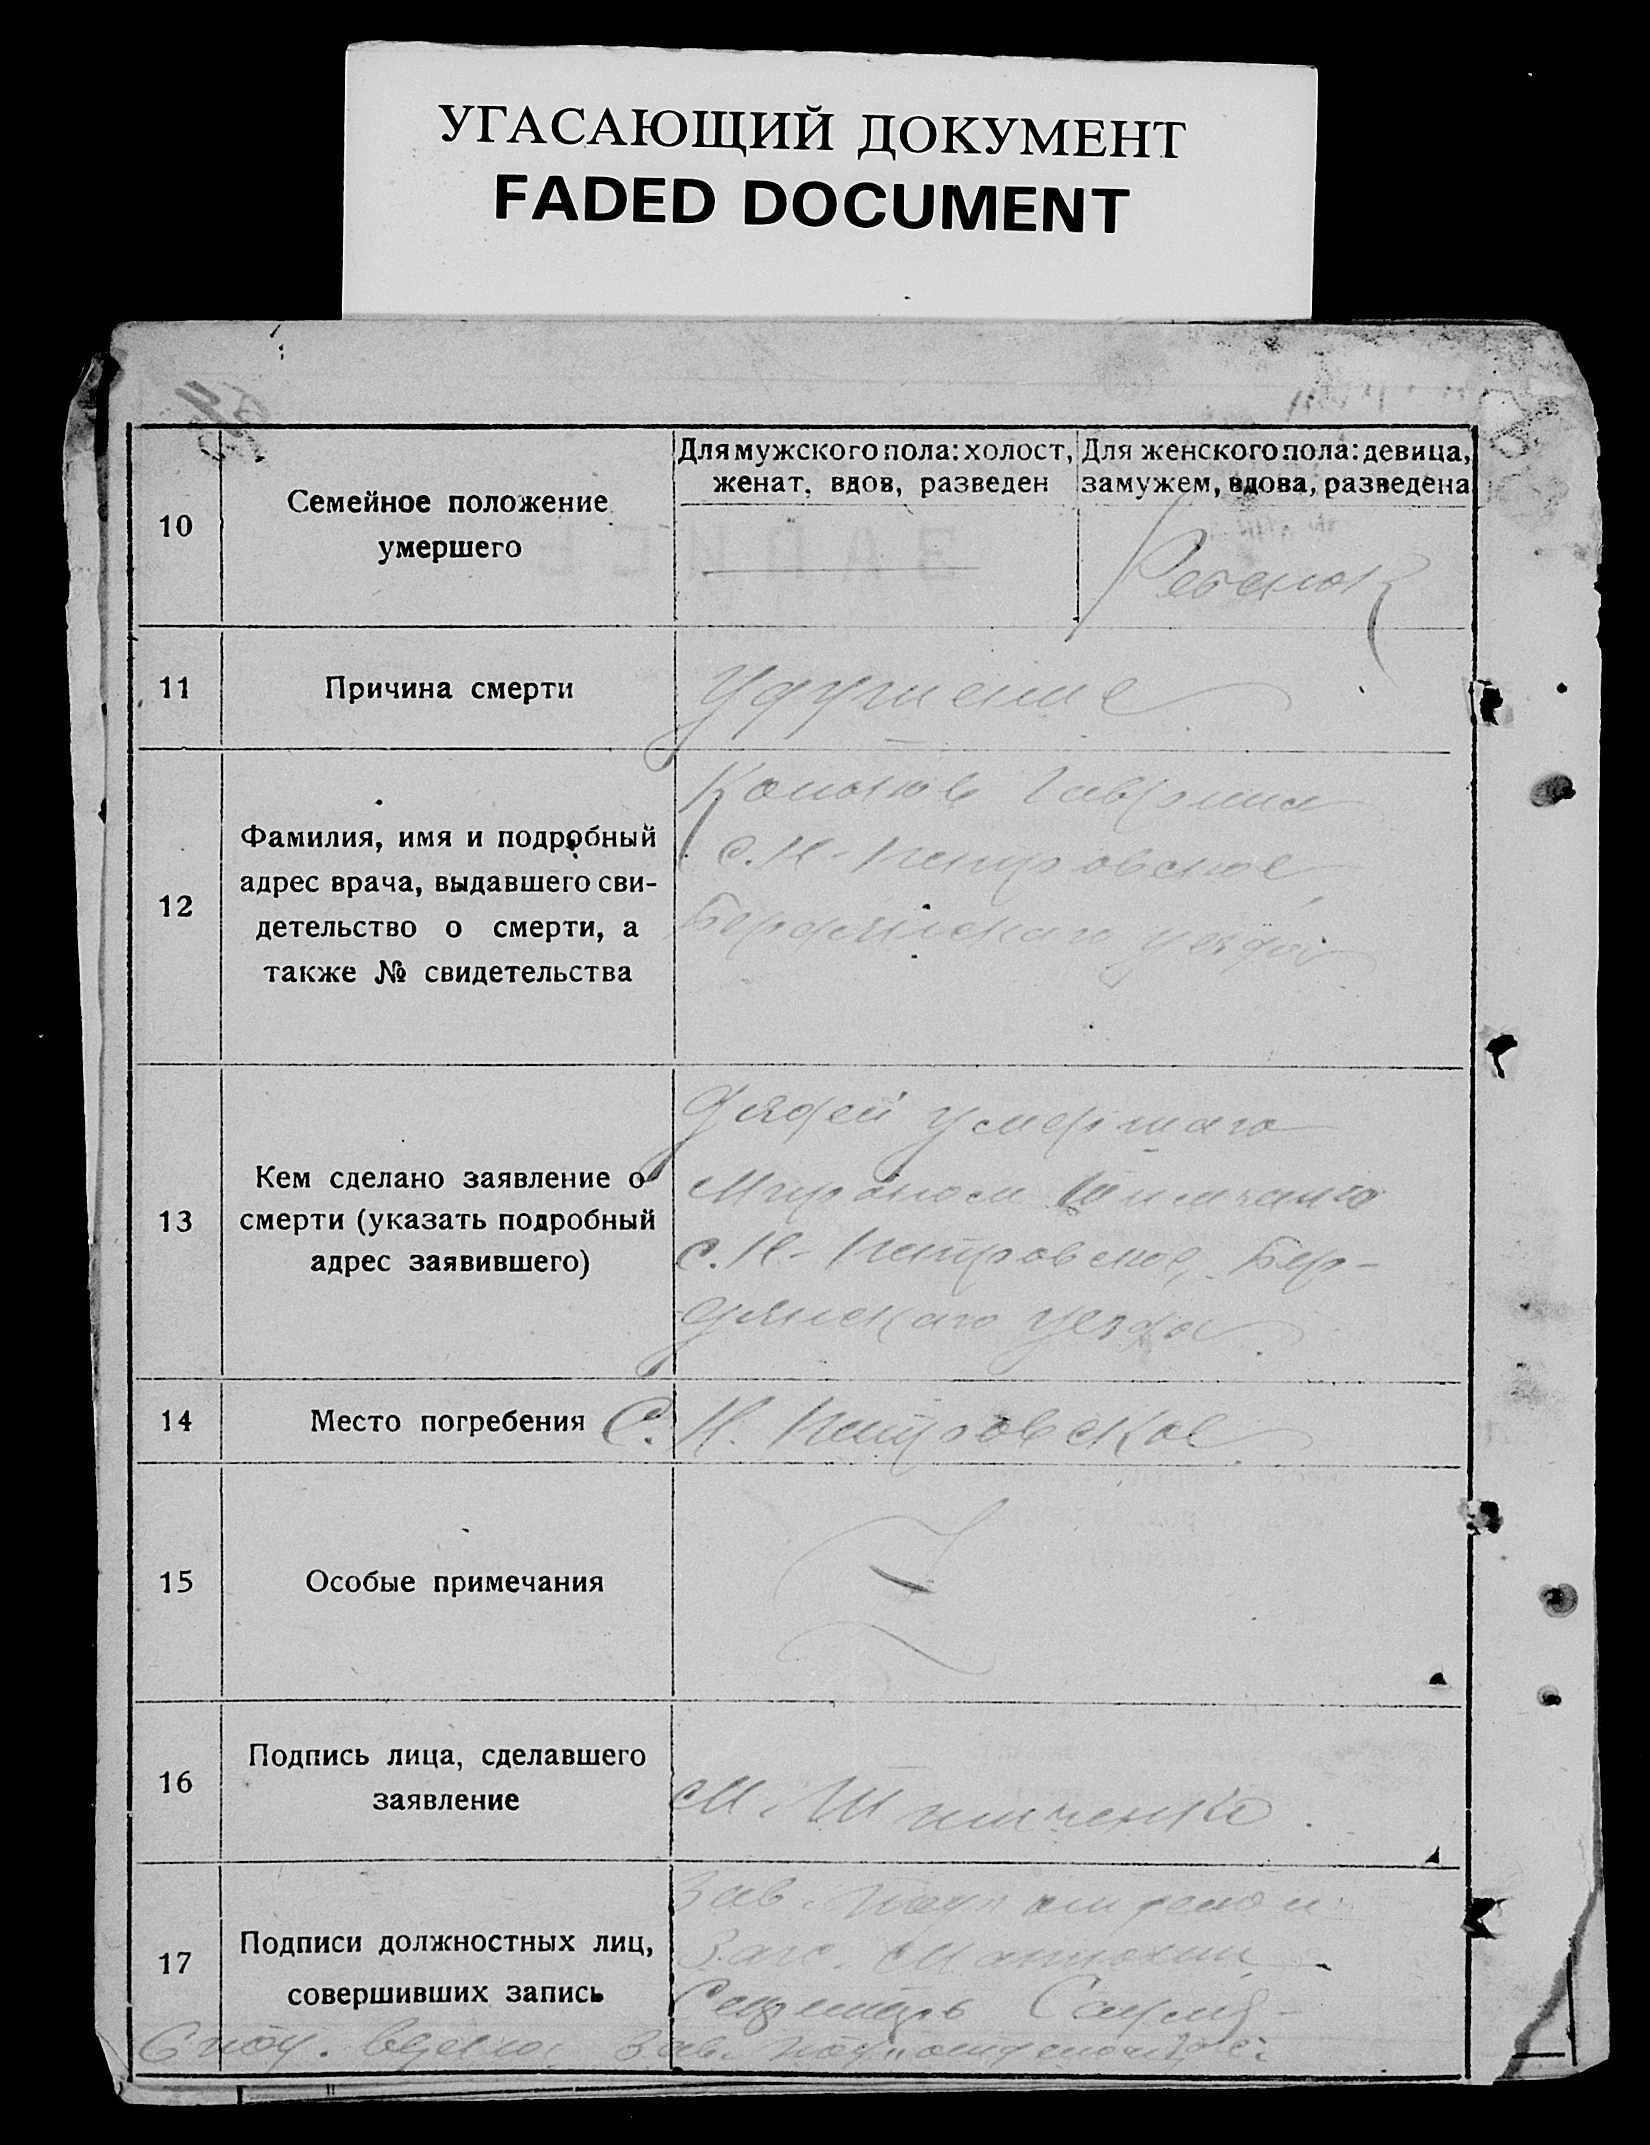 УГАСАЮЩИЙ ДОКУМЕНТ
FADED DOCUMENT
10
Семейное положение
умершего
Для мужского пола: холост,
женат, вдов, разведен
Для женского пола: девица,
замужем, вдова, разведена
Ребенок
11
Причина смерти
Удушение
12
Фамилия, имя и подробный
адрес врача, выдавшего сви-
детельство о смерти, а
также № свидетельства
с. Н-Петровское
Бердянскаго уезда
13
Кем сделано заявление о
смерти (указать подробный
адрес заявившего)
Дядей умершаго
Мироном
с. Н-Петровское, Бер-
дянскаго уезда
14
Место погребения
С. Н. Петровское
15
Особые примечания
16
Подпись лица, сделавшего
заявление
М.
17
Подписи должностных лиц,
совершивших запись
Зав.
Загс.
Секретарь
Зав.